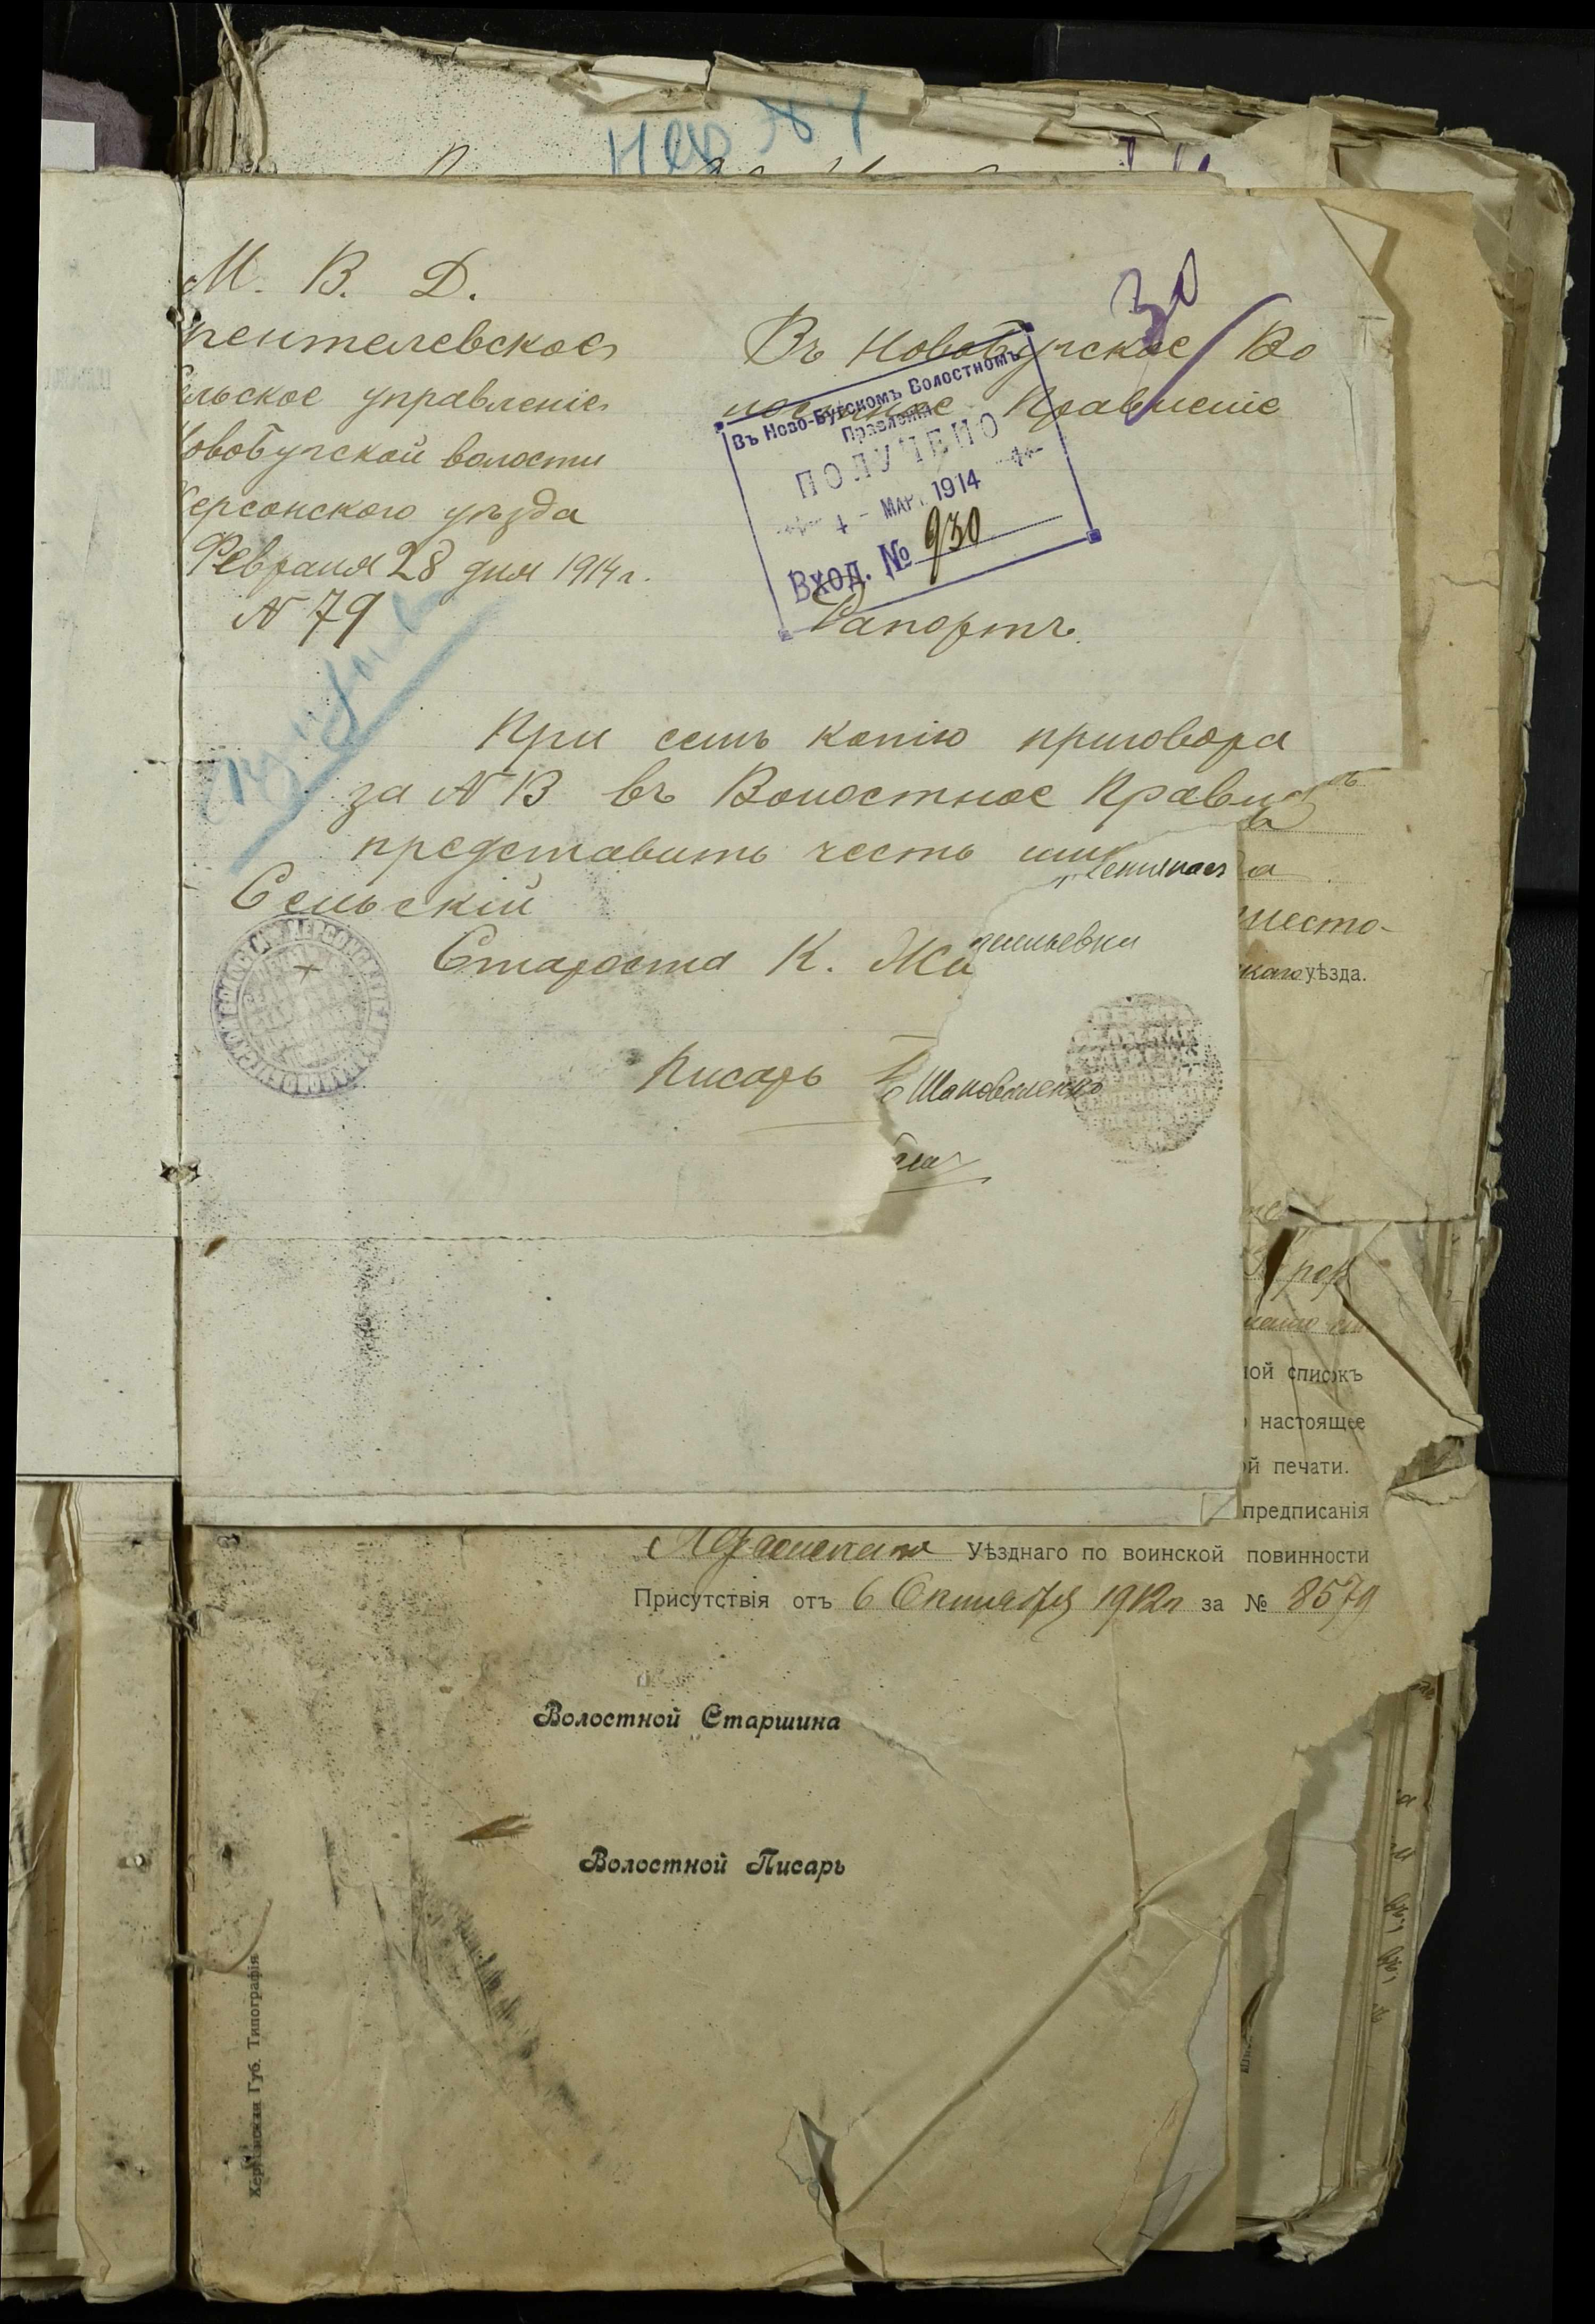 М. В. Д.
рентелевское
льское управленіе
овобугской волости
ерсонского уѣзда
Февраля 28 дня 1914 г.
№ 79
30
Въ Новобугское Во
лостное Правленіе
Въ Ново-Бугскомъ Волостномъ
Правленіи
ПОЛУЧЕНО
4 - МАР. 1914
Вход. № 930
Рапортъ.
При семъ копію приговора
за № 13 въ Волостное Правл
представить честь им
Сельскій
Староста К. Жи
Писарь
Шаповаленко
место-
скаго уѣзда.
ной списокъ
настоящее
ой печати.
предписанія
Херсонскаго Уѣзднаго по воинской повинности
Присутствія отъ 6 Октября 1912 г за № 8579
Волостной Старшина
Волостной Писарь
Херсонская Губ. Типографія